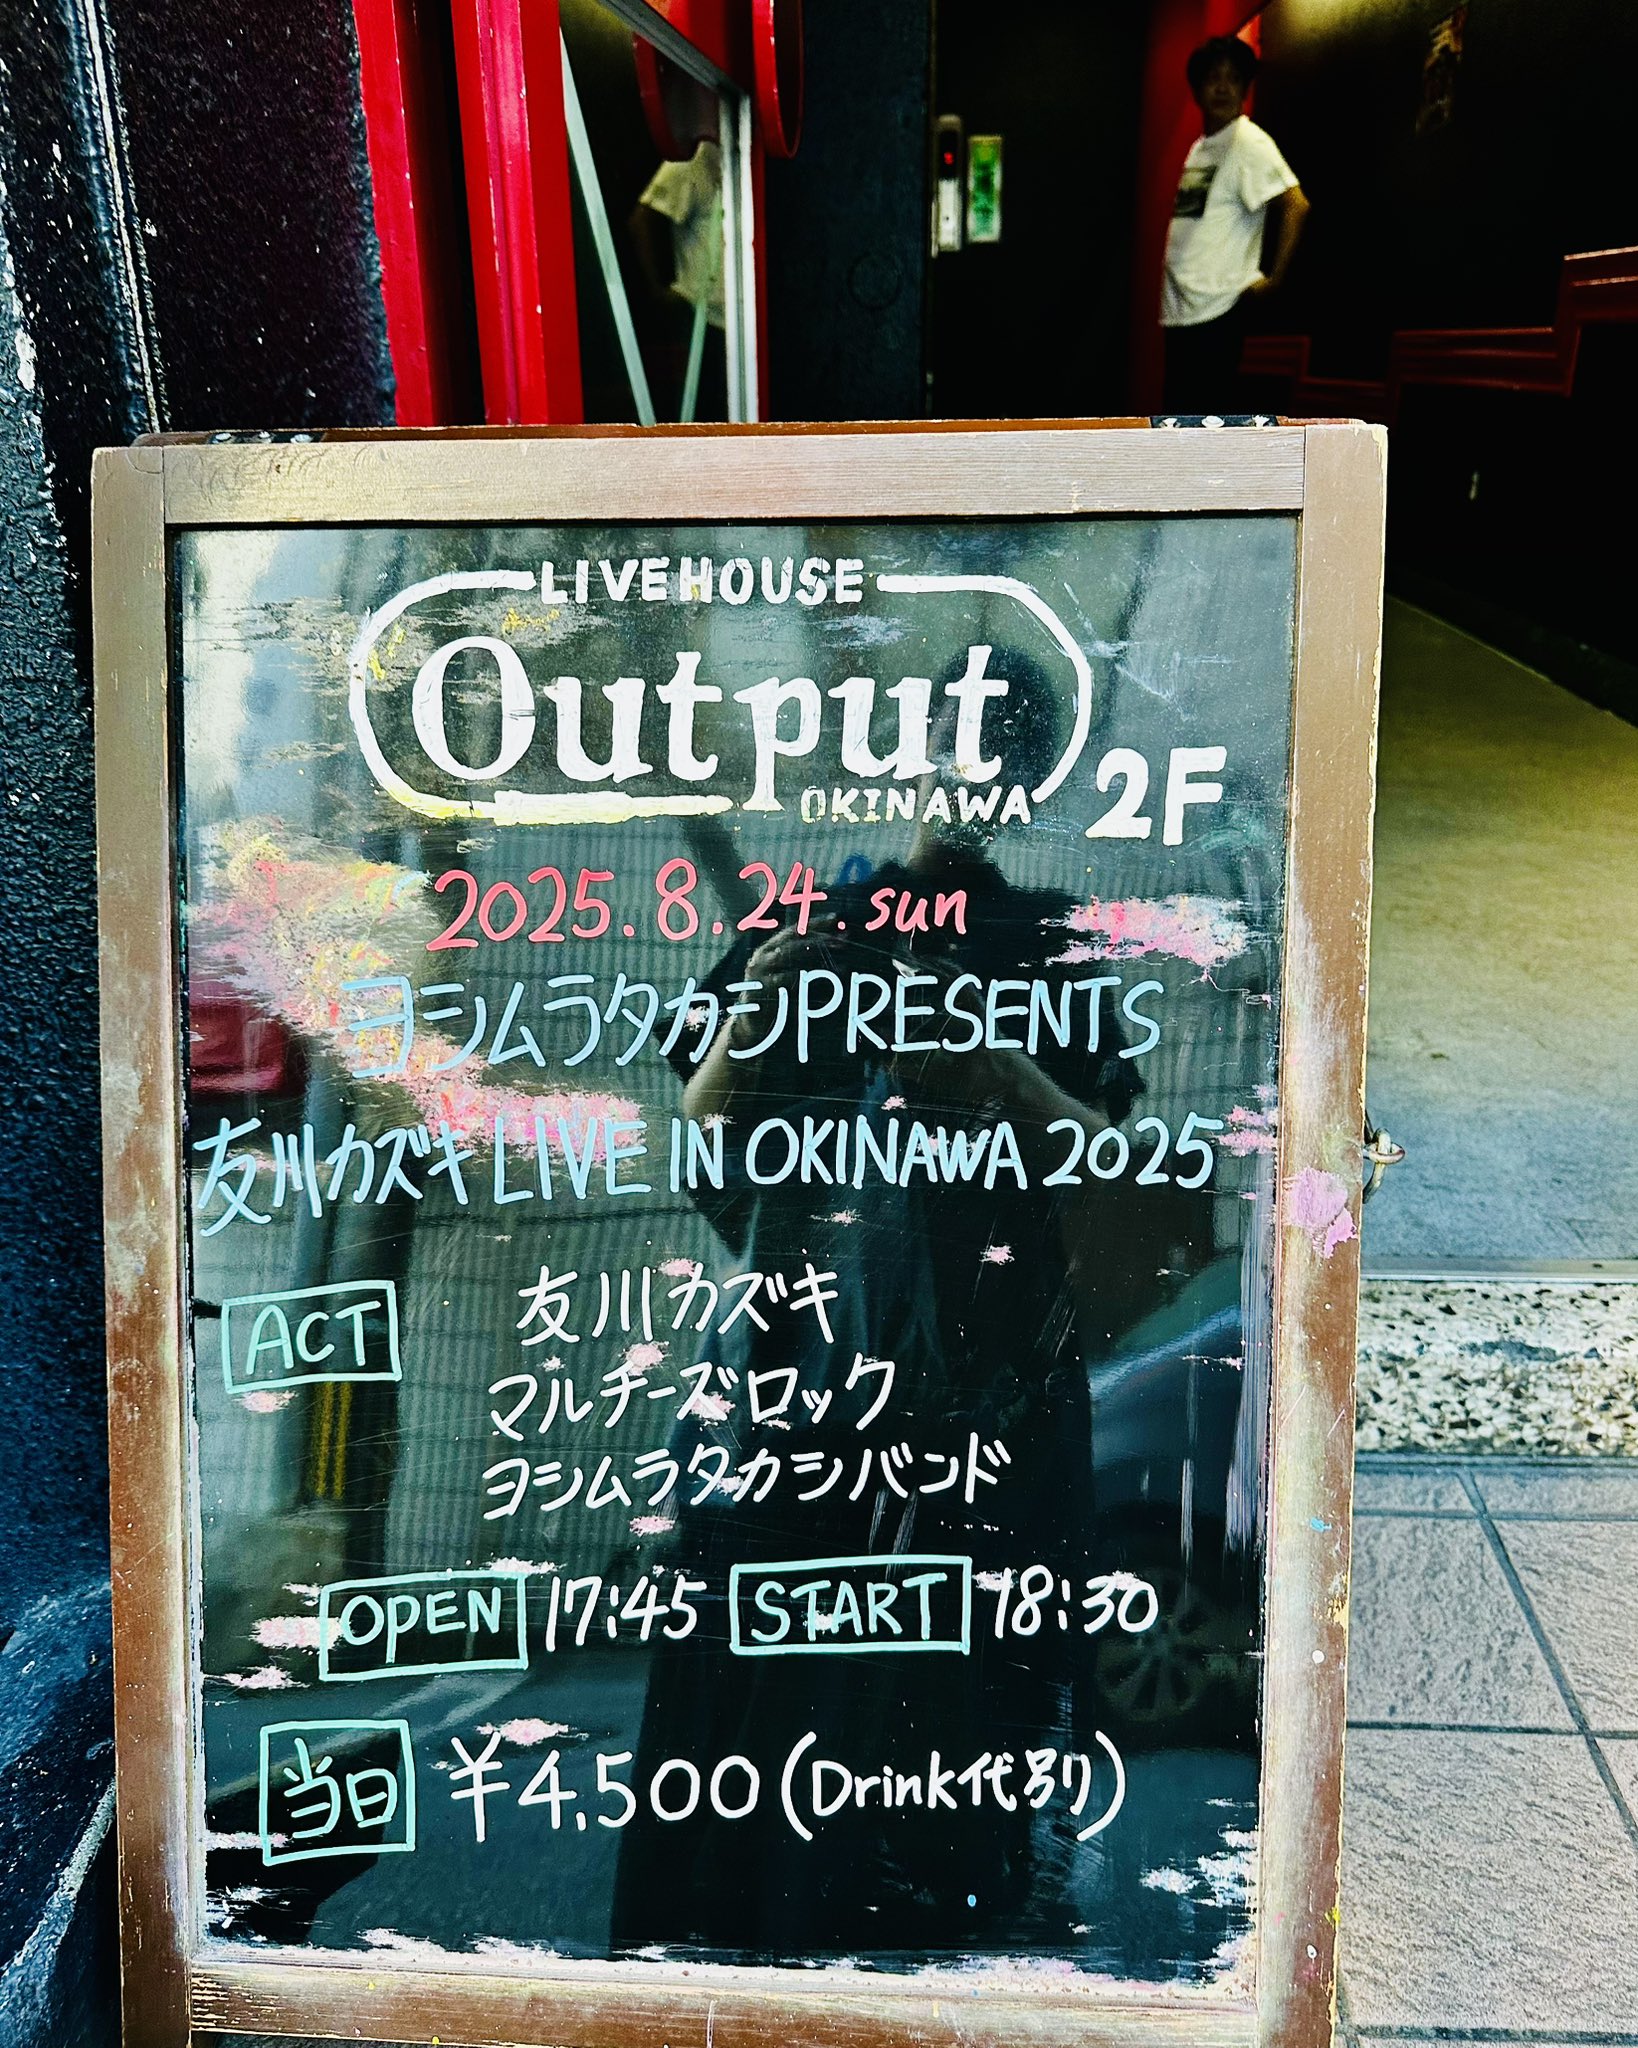 LIVEHOUSE
Output
OKINAWA
2F
2025.8.24.sun
ヨシムラタカシPRESENTS
友川カズキ LIVE IN OKINAWA 2025
ACT
友川カズキ
マルチーズロック
ヨシムラタカシバンド
OPEN 17:45 START 18:30
当日 ¥4,500(Drink代別)